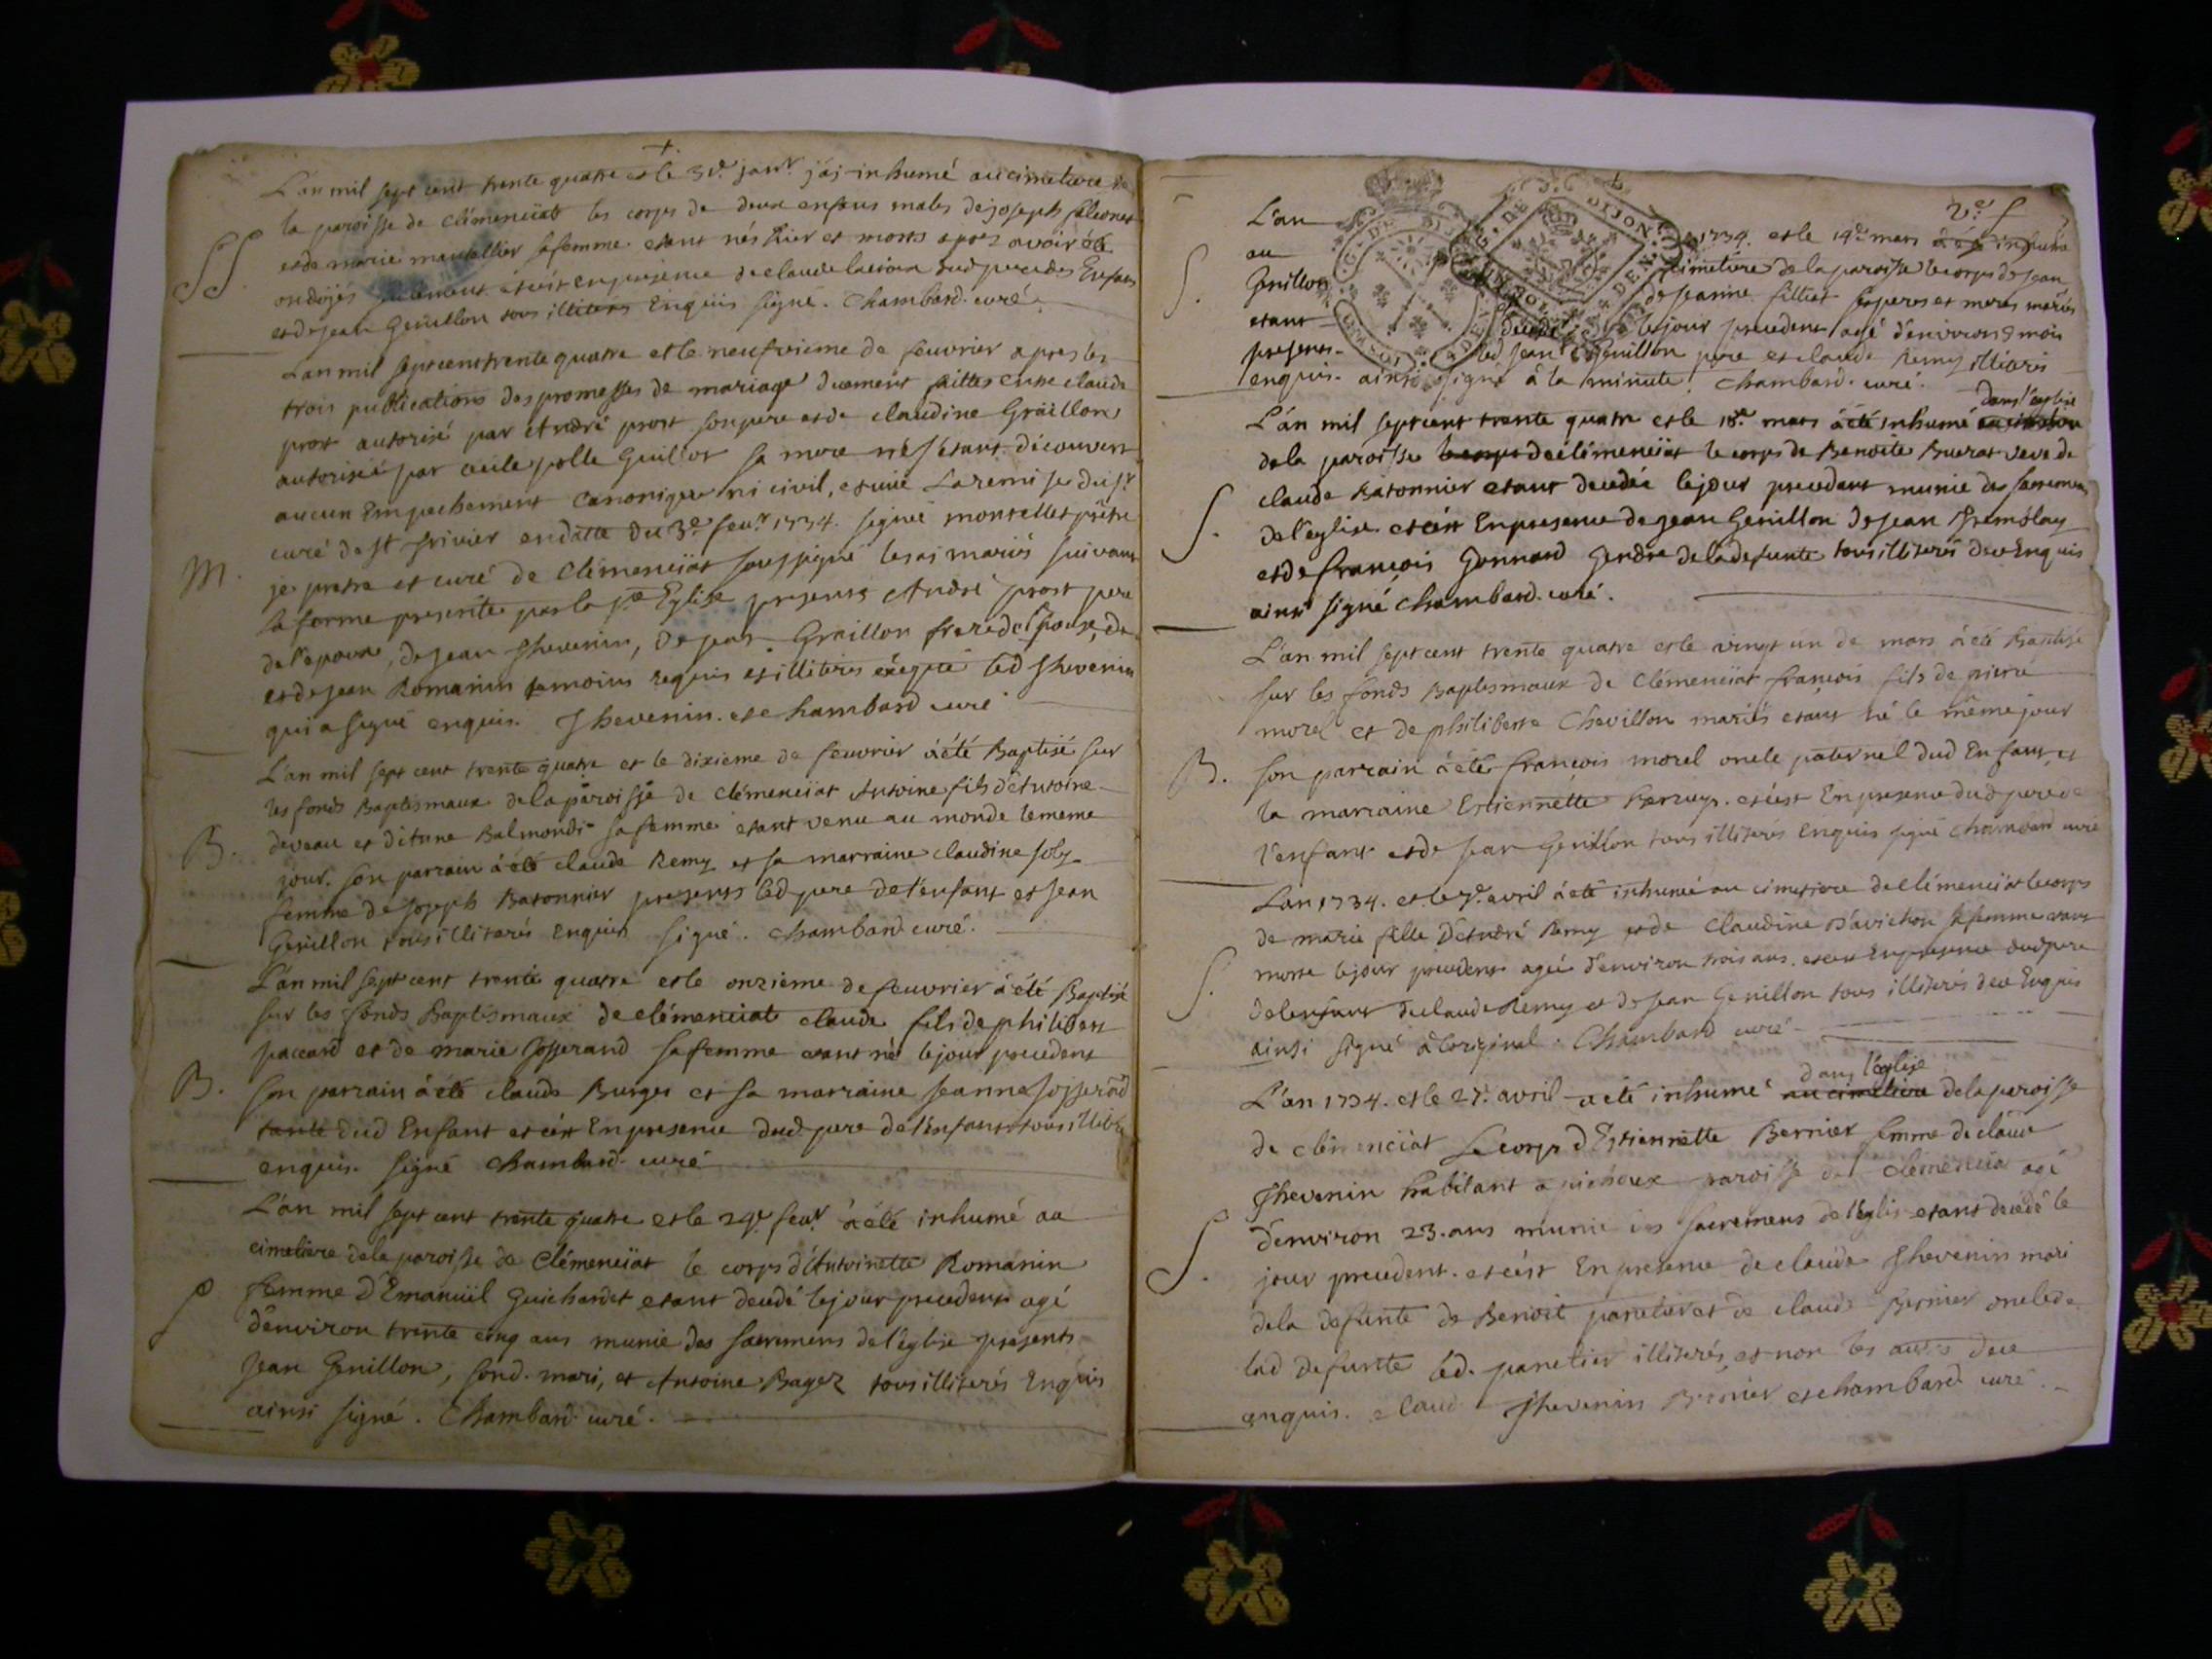 L'an mil sept cent trente quatre et le 31e janv. j'ai inhumé au cimetiere de
la paroisse de clémenciat les corps de deux enfans males de joseph
et de marie mantellier sa femme etant nés hier et morts apres avoir été
ondojés et c'est en presence de claude dud pere des Enfans
SS
et de jean Genillon tous illiterés Enquis signé. Chambard curé
L'an mil sept cent trente quatre et le neufvieme de feuvrier apres les
trois publications des promesses de mariage duement faittes entre claude
prost autorisé par André prost son pere et de claudine Graillon
autorisée par cecile polle Guillot sa mere ne s'étant découvert
aucun Empechement canonique ni civil, et vuë La remise du sr
curé de st trivier en datte du 3e feuvr 1734. signée montellet prêtre
M.
je pretre et curé de Clémenciat soussigné les ai mariés suivant
la forme presentte par la ste Eglise presents André prost pere
de l'epoux, de jean Thevenin, de jean Graillon frere de l'epouse, de
et de jean Romanin temoins requis et illiterés excepté led Thevenin
qui a signé enquis. Thevenin. et chambard curé
L'an mil sept cent trente quatre et le dixieme de feuvrier à été Baptisé sur
les fonds Baptismaux de la paroisse de Clémenciat Antoine fils d'Antoine
B.
deveau et d'Etune Balmondi sa femme etant venu au monde le meme
jour. son parrain à été claude Remy et sa marraine claudine joly
femme de joseph Batonnier presents led pere de l'enfant et jean
Genillon tous illiterés Enquis signé. Chambard curé.
L'an mil sept cent trente quatre et le onzieme de feuvrier à été Baptisé
sur les fonds Baptismaux de clémenciat claude fils de philibert
paccard et de marie Josserand sa femme etant né le jour precedent
B.
son parrain à été claude Burger et sa marraine jeanne josserand
tante dud Enfant et c'est En presence dud pere de l'enfant tous illité
enquis. signé Chambard curé
L'an mil sept cent trente quatre et le 24e feuvr à été inhumé au
cimetiere de la paroisse de Clémenciat le corps d'Antoinette Romanin
S
femme d'Emanuël Guichardet etant decedé le jour precedent agé
d'environ trente cinq ans munie des sacremens de l'église presents
Jean Genillon, sond. mari, et Antoine Bagez tous illiterés Enquis
ainsi signé. Chambard curé.
2e f
L'an 1734. et le 14e mars à été inhumé
au cimetiere de la paroisse le corps de jean
S.
Genillon de jeanne filliet ses peres et meres mariés
etant decedé le jour precedent agé d'environ 8 mois
presens led jean Genillon pere et claude Remy illiterés
enquis. ainsi signé à la minute. Chambard curé.
dans l'eglise
L'an mil sept cent trente quatre et le 18e mars à été inhumé au cimetiere
de la paroisse le corps de clémenciat le corps de Benoite Buerat veve de
claude Batonnier etant decedée le jour precedent munie des sacremens
S.
de l'eglise. et c'est En presence de jean Genillon de jean Tremblay
et de françois Gonnard Gendre de la defunte tous illiterés de ce Enquis
ainsi signé chambard. curé.
L'an mil sept cent trente quatre et le vingt un de mars à été Baptisé
sur les fonds Baptismaux de Clémenciat françois fils de pierre
morel et de philiberte Chevillon mariés etant né le même jour
B.
son parrain à été françois morel oncle paternel dud Enfant, et
la marraine Estiennette . et c'est En presence dud pere de
l'enfant et de jean Genillon tous illiterés Enquis signé Chambard curé
L'an 1734. et le 7e avril à été inhumée au cimetiere de clémenciat le corps
de marie fille d'André Remy et de Claudine Davichon sa femme etant
S.
morte le jour precedent agée d'environ trois ans. et c'est En presence dud pere
de lenfant de claude Remy et de jean Genillon tous illiterés de ce Enquis
ainsi signé à l'original. Chambard curé
dans l'église
L'an 1734. et le 27e avril a été inhumé au cimetiere de la paroisse
de clémenciat Le corps d'Estiennette Bernier femme de claude
Thevenin habitant a paroisse de Clémenciat agé
S.
d'environ 23. ans munie des sacremens de l'églis etant decedé le
jour precedent. et c'est En presence de claude Thevenin mari
de la defunte de Benoit panetier et de claude Bernier oncle de
lad defunte led. panetier illiterés, et non les autres de ce
enquis. claud Thevenin Bernier et chambard curé.